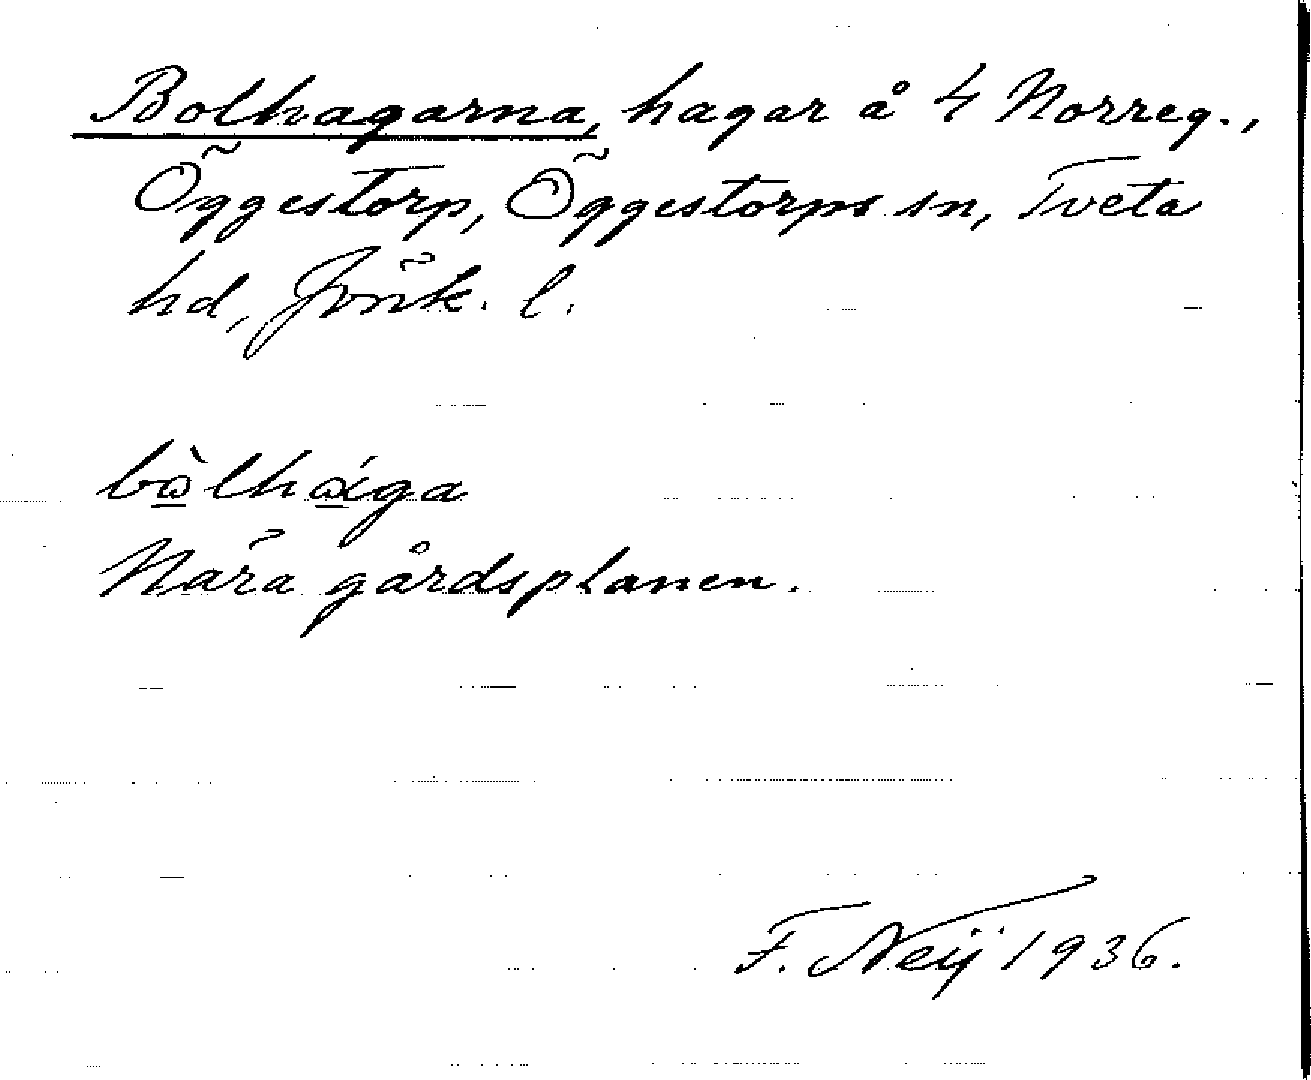 Bolhagarna, hagar å 4 Norreg.,
Öggestorp, Öggestorps sn, Tveta
hd, Jönk. l.
bὼ̲lhά̲ga
Nära gårdsplanen.
F. Neij 1936.